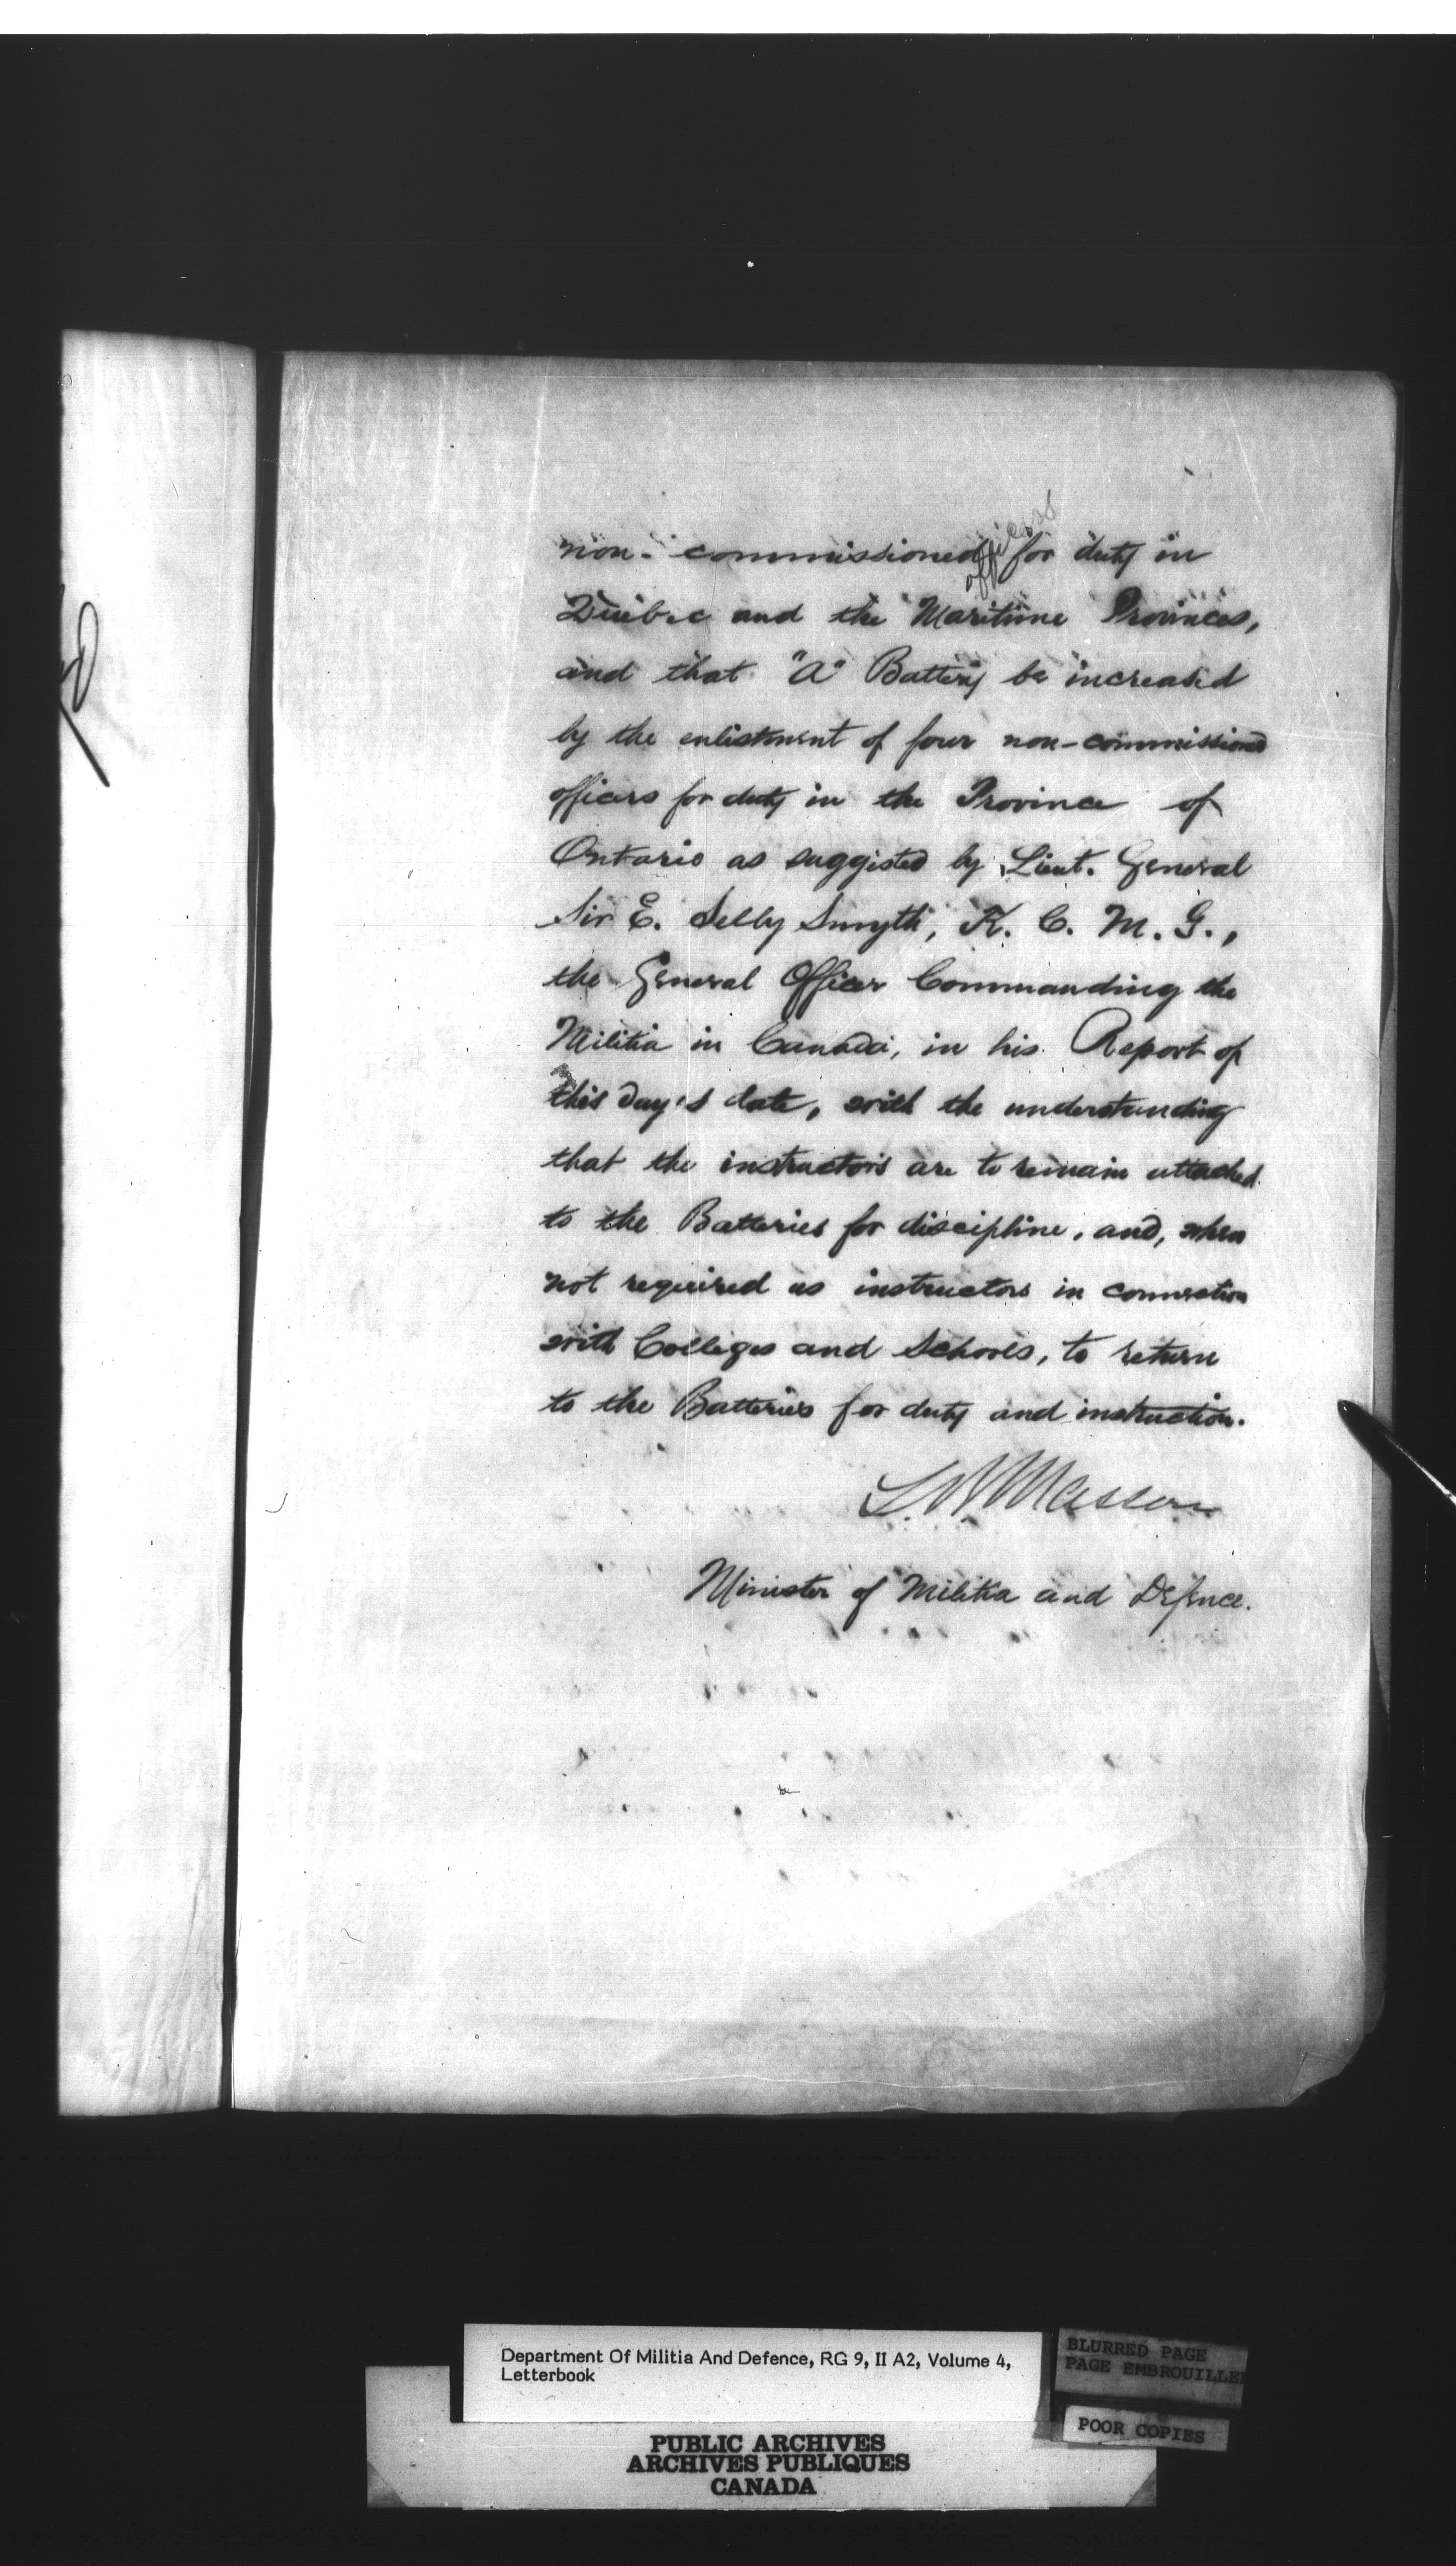 non-commissioned officers for duty in
Quebec and the Maritime Provinces,
and that "A" Battery be increased
by the enlistment of four non-commissioned
officers for duty in the Province of
Ontario as suggested by Lieut. General
Sir E. Selby Smyth, K. C. M. G.,
the General Officer Commanding the
Militia in Canada, in his Report of
this day's date, with the understanding
that the instructors are to remain attached
to the Batteries for discipline, and, when
not required as instructors in connection
with Colleges and Schools, to return
to the Batteries for duty and instruction.
L. R. Masson
Minister of Militia and Defence.
Department Of Militia And Defence, RG 9, II A2, Volume 4,
Letterbook
BLURRED PAGE
PAGE EMBROUILLEE
POOR COPIES
PUBLIC ARCHIVES
ARCHIVES PUBLIQUES
CANADA